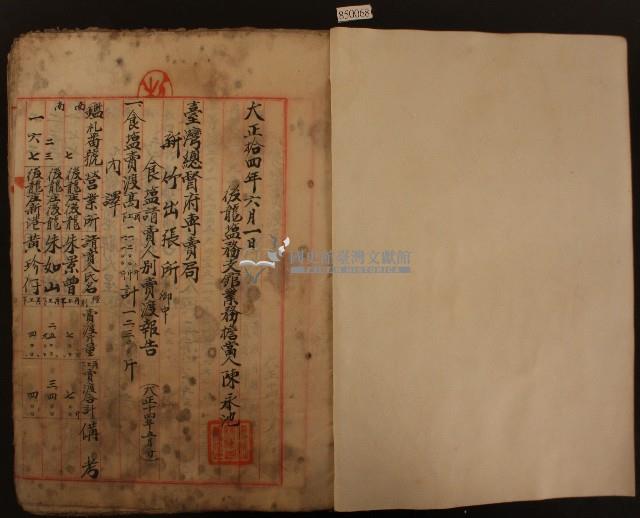 850068
大正拾四年六月一日
後龍塩務支館業務擔當人陳永池
臺灣總督府專賣局
新竹出張所 御中
食塩請賣人別賣渡報告 (大正十四年五月分)
一、食塩賣渡高
計一二三
斤
內譯
鑑札番號 營業所 請賣人名 賣渡斤量 賣渡合計 備考
南 七 後龍庄後龍 朱景曾 七 七
南 二三 後龍庄後龍 朱如山 三四
一六七 後龍庄新港 黃珍仔 四 四
國史館臺灣文獻館
TAIWAN HISTORICA